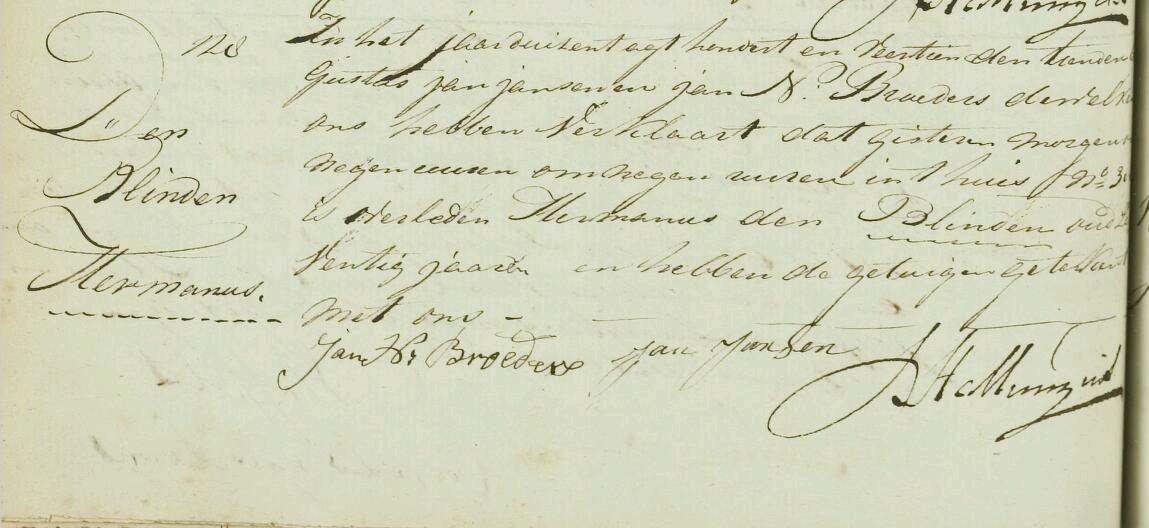 N 8
Den
Blinden
Hermanus.
In het jaar duisent agt hondert en veertien den tienden
Gustus jan jansen en jan Ns. Broeders dewelke
ons hebben verklaart dat gisteren morgen
negen uuren om negen uuren int huis No. 3
is overleden Hermanus den Blinden oud
ventig jaaren en hebben de getuigen getekent
met ons -
Jan Ns Broeders Jan Jansen